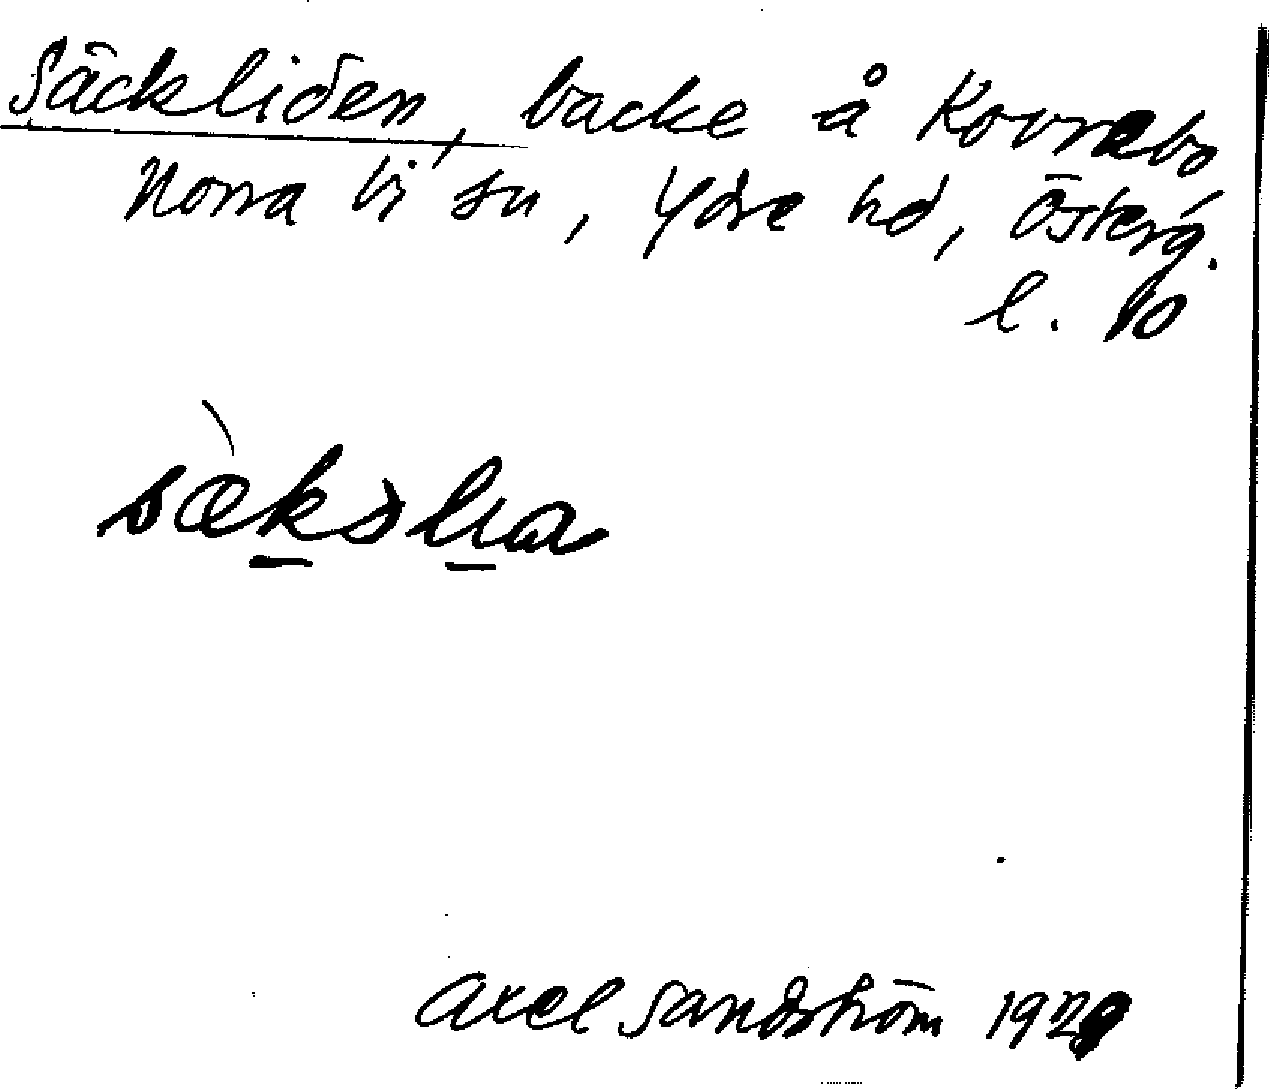 Säckliden, backe å Kovrabo
Norra Vi sn, Ydre hd, Österg.
l. 10
Axel Sandström 1929